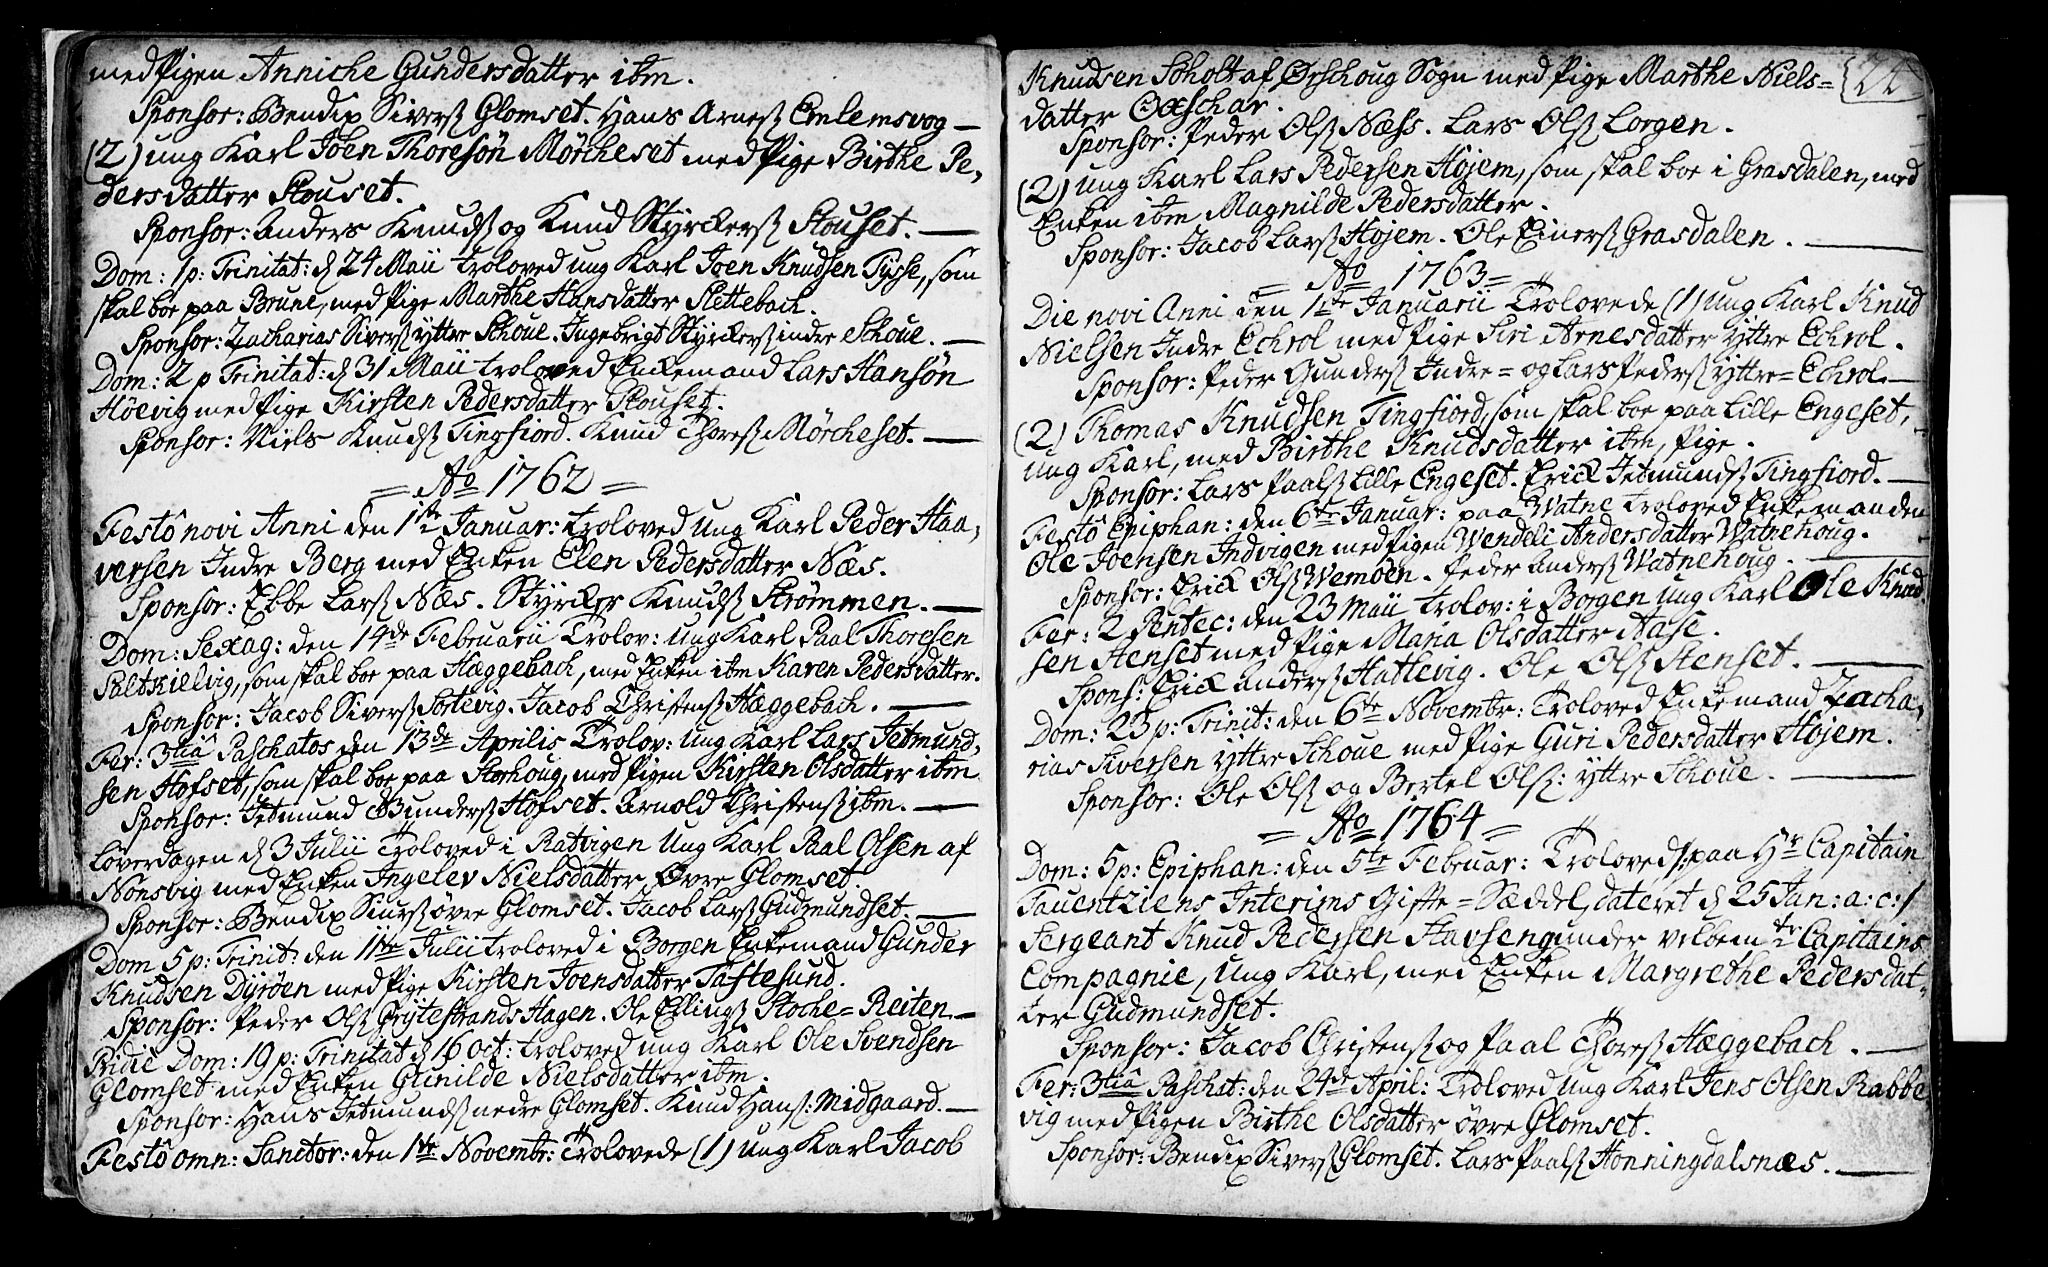 med Pigen Anniche Gundersdatter ibm.
Sponsor: Bendix Siverß Glomset. Hans Arneß Emlemsvog —
(2) ung Karl Joen Thoresøn Mörcheset med Pige Birthe Pe,
dersdatter Skouset.
Sponsor: Anders Knudß og Knud Styrckerß Skouset. —
Dom: 1 p: Trinitat: d 24 Maii troloved ung Karl Joen Knudsen Tysse, som
skal boe paa Brune, med Pige Marthe Hansdatter Slettebach.
Sponsor: Zacharias Siverß yttre Schoue. Ingebrigt Styrckerß indre Schoue. —
Dom: 2 p Trinitat: d 31 Maii troloved Enckemand Lars Hansøn
Höevig med Pige Kirsten Pedersdatter Skouset.
Sponsor: Niels Knudß Tingfiord. Knud Thoreß Mörcheset. —
= Ao 1762 =
Festô novi Anni den 1ste Januar: troloved ung Karl Peder Haa,
versen Indre Berg med Enken Elen Pedersdatter Næs.
Sponsor: Ebbe Larß Næs. Styrcker Knudß Strömmen. —
Dom: Sexag: den 14de Februarii Trolov: ung Karl Paal Thoresen
Saltkielvig, som skal boe paa Hæggebach, med Enken ibm Karen Pedersdatter.
Sponsor: Jacob Siverß Sortevig. Jacob Christenß Hæggebach. —
Fer: 3tiâ Paschatos den 13de Aprilis Trolov: ung Karl Lars Jetmund,
sen Hofset, som skal boe paa Storhoug, med Pigen Kirsten Olsdatter ibm
Sponsor: Jetmund Gunderß Hofset. Arnold Christenß ibm. —
Löverdagen d 3 Julii Troloved i Ratvigen Ung Karl Paal Olsen af
Nonsvig med Enken Ingelev Nielsdatter Øvre Glomset.
Sponsor: Bendix Siurß övre Glomset. Jacob Larß Gudmundset. —
Dom 5 p: Trinit: den 11te Julii troloved i Borgen Enkemand Gunder
Knudsen Dyröen med Pige Kirsten Joensdatter Taftesund.
Sponsor: Peder Olß Grytestrands Hagen. Ole Ellingß Stoche=Reiten —
Pridie Dom: 19 p: Trinitat d 16 Oct: troloved ung Karl Ole Svendsen
Glomset med Enken Gunilde Nielsdatter ibm.
Sponsor: Hans Jetmundß nedre Glomset. Knud Hanß: Midgaard. —
Festô omn: Sanctor: den 1te Novembr: Trolovede (1) ung Karl Jacob
24
Knudsen Soholt af Ørschoug Sogn med Pige Marthe Niels=
datter Oxschar.
Sponsor: Peder Olß Næss. Lars Olß Lorgen.
(2) Ung Karl Lars Pedersen Höjem, som skal boe i Grasdalen, med
Enken ibm Magnilde Pedersdatter.
Sponsor: Jacob Larß Höjem. Ole Einerß Grasdalen. —
= Ao 1763 =
Die novi Anni den 1ste Januarii Trolovede (1) ung Karl Knud
Nielsen Indre Echrol med Pige Siri Arnesdatter yttre Echrol.
Sponsor: Peder Gunderß Indre= og Lars Pederß yttre= Echrol —
(2) Thomas Knudsen Tingfiord, som skal boe paa Lille Engeset,
ung Karl, med Birthe Knudsdatter ibm, Pige.
Sponsor: Lars Paalß Lille Engeset. Erick Jetmundß Tingfiord. —
Festô Epiphan: den 6te Januar: paa Watne troloved Enkemanden
Ole Joensen Indvigen med Pigen Wendele Andersdatter Watnehoug.
Sponsor: Erick Olß Wemöen. Peder Anderß Watnehoug. —
Fer: 2 Pentec: den 23 Maii trolov: i Borgen ung Karl Ole Knud,
sen Stenset med Pige Maria Olsdatter Aase.
Spons: Erick Anderß Hatlevig. Ole Olß Stenset. —
Dom: 23 p: Trinit: den 6te Novembr: Troloved Enkemand Zacha,
rias Siversen yttre Schoue med Pige Guri Pedersdatter Höjem.
Sponsor: Ole Olß og Bertel Olß: yttre Schoue. —
= Ao 1764 =
Dom: 5 p: Epiphan: den 5te Februar: Troloved /: paa Hr Capitain
Tauentziens Interims Gifte=Sæddel, dateret d 25 Jan: a: c: /
Sergeant Knud Pedersen Stavseng under velbem te Capitains
Compagnie, Ung Karl, med Enken Margrethe Pedersdat,
ter Gudmundset.
Sponsor: Jacob Christenß og Paal Thoreß Hæggebach. —
Fer: 3tiâ Paschat: den 24de April: Troloved Ung Karl Jens Olsen Rabbe
vig med Pigen Birthe Olsdatter övre Glomset.
Sponsor: Bendix Siverß Glomset. Lars Paalß Honningdalsnæs. —